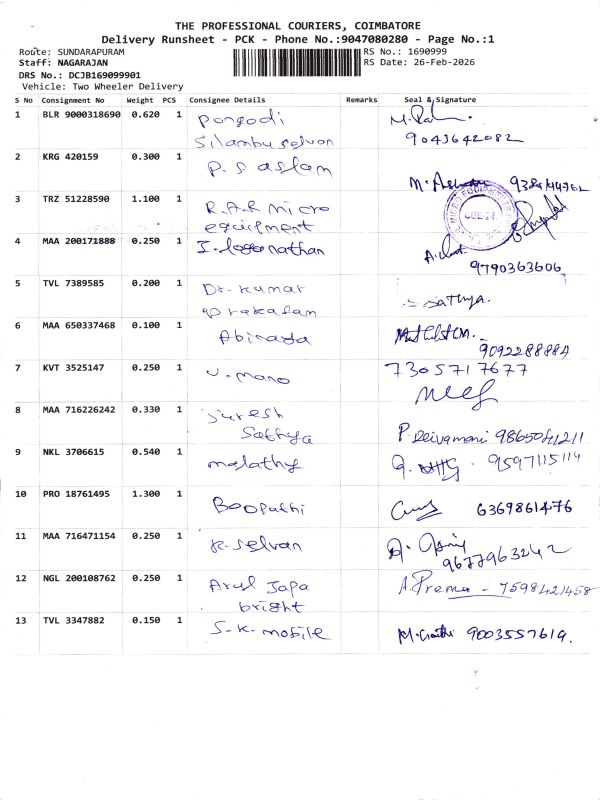 THE PROFESSIONAL COURIERS, COIMBATORE
Delivery Runsheet - PCK - Phone No.:9047080280 - Page No.:1
Route: SUNDARAPURAM RS No.: 1690999
Staff: NAGARAJAN RS Date: 26-Feb-2026
DRS No.: DCJB169099901
Vehicle: Two Wheeler Delivery
S No Consignment No Weight PCS Consignee Details Remarks Seal & Signature
1 BLR 9000318690 0.620 1 Pongodi
Silambu selvan 9043642082
2 KRG 420159 0.300 1 P. S aslam
3 TRZ 51228590 1.100 1 R.A.R micro
equipment
4 MAA 200171888 0.250 1 J. loganathan
9790363606
5 TVL 7389585 0.200 1 Dr. Kumar
prakasam sathya.
6 MAA 650337468 0.100 1 Abinaya
9092288884
7 KVT 3525147 0.250 1 U. mano 7305717677
8 MAA 716226242 0.330 1 Suresh
Sathya P. Deivamani 9865041211
9 NKL 3706615 0.540 1 malathy 9597115114
10 PRO 18761495 1.300 1 Boopathi 6369861476
11 MAA 716471154 0.250 1 K. selvan
9677963242
12 NGL 200108762 0.250 1 Arul Japa A. Prema - 7598421458
bright
13 TVL 3347882 0.150 1 S.K. mobile 9003557619.